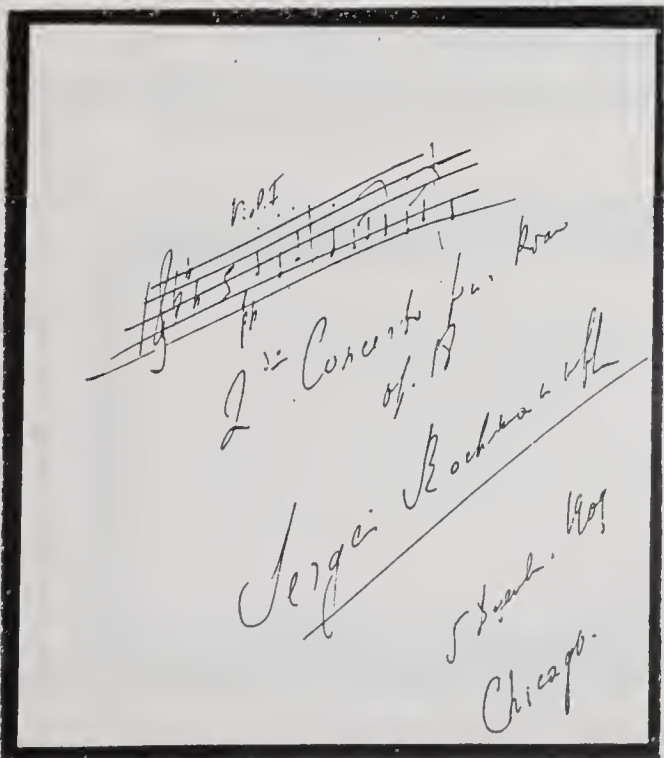 Viol. I
pp
2me Concerto pour Piano
op. 18
Sergei Rachmaninoff
5 Decemb. 1909
Chicago.